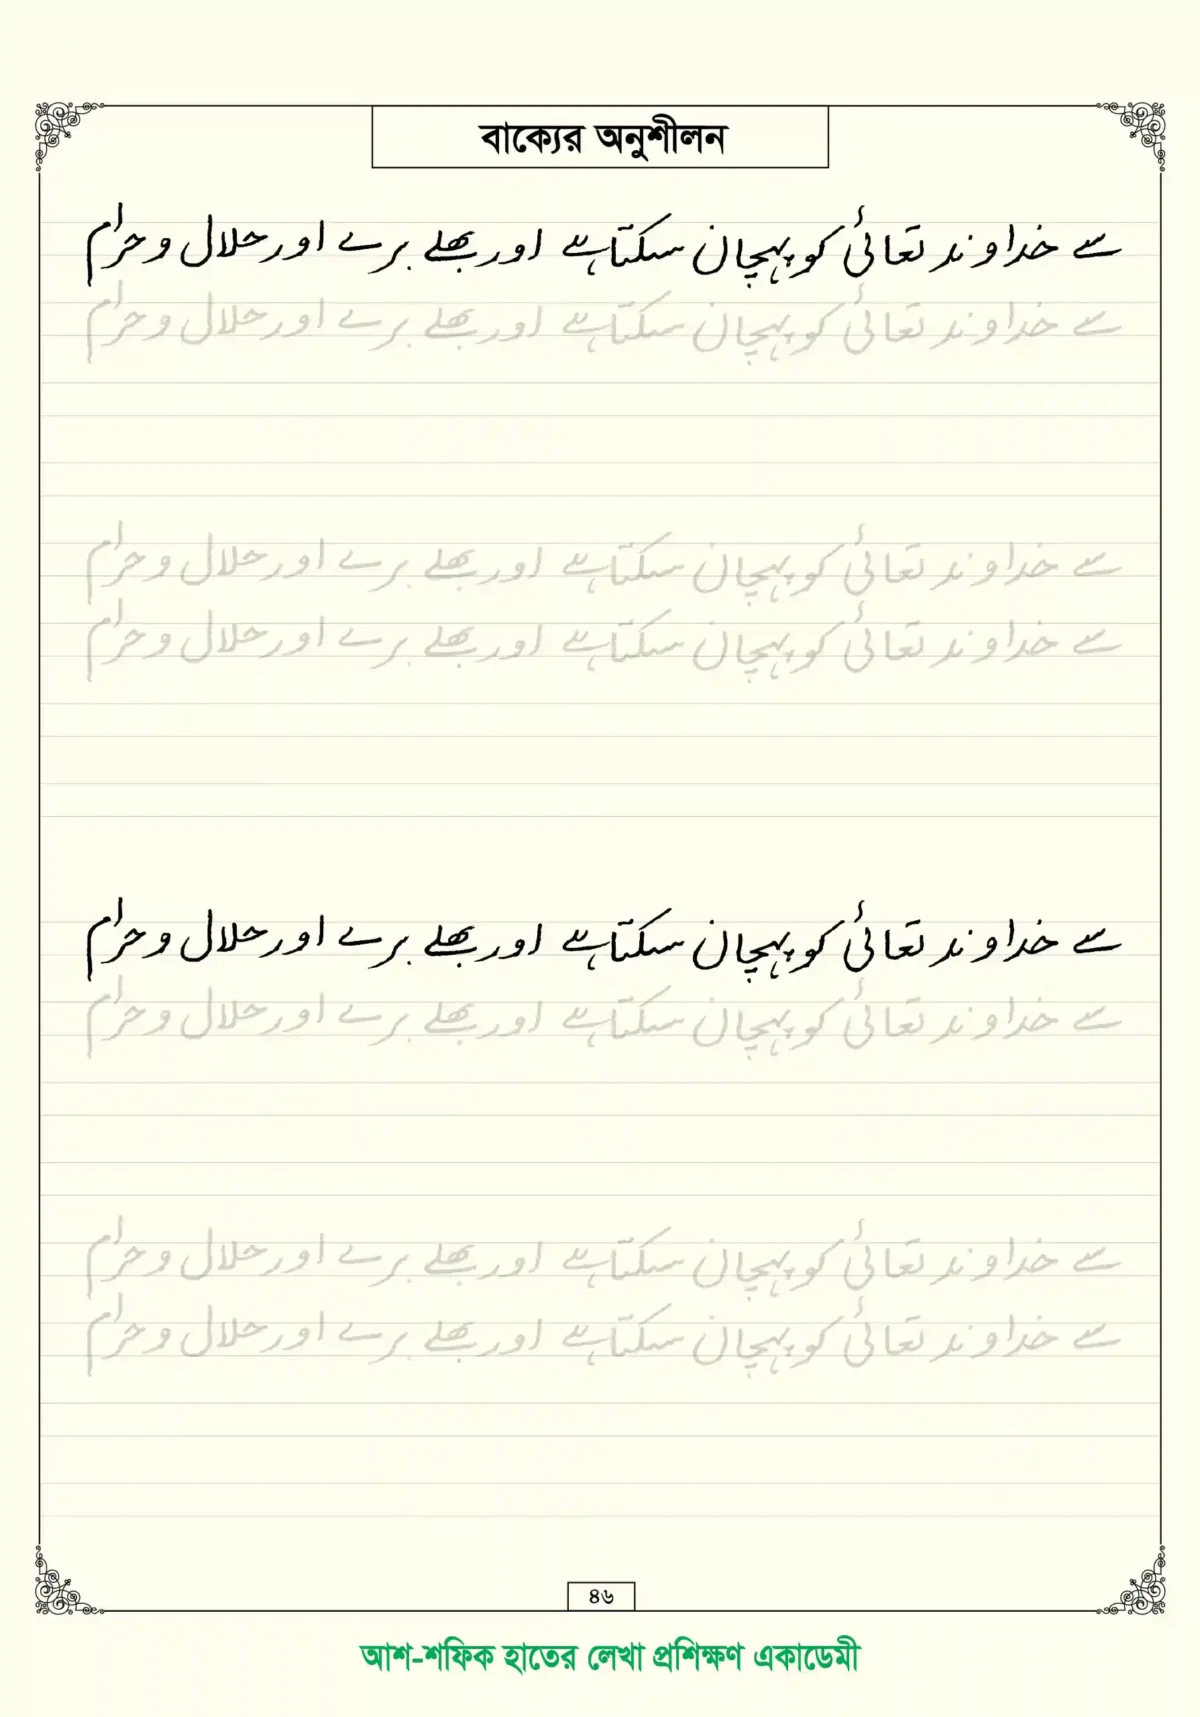 বাক্যের অনুশীলন
سے خداوند تعالیٰ کو پہچان سکتا ہے اور بھلے برے اور حلال و حرام
سے خداوند تعالیٰ کو پہچان سکتا ہے اور بھلے برے اور حلال و حرام
سے خداوند تعالیٰ کو پہچان سکتا ہے اور بھلے برے اور حلال و حرام
سے خداوند تعالیٰ کو پہچان سکتا ہے اور بھلے برے اور حلال و حرام
سے خداوند تعالیٰ کو پہچان سکتا ہے اور بھلے برے اور حلال و حرام
سے خداوند تعالیٰ کو پہچان سکتا ہے اور بھلے برے اور حلال و حرام
سے خداوند تعالیٰ کو پہچان سکتا ہے اور بھلے برے اور حلال و حرام
سے خداوند تعالیٰ کو پہچان سکتا ہے اور بھلے برے اور حلال و حرام
৪৬
আশ-শফিক হাতের লেখা প্রশিক্ষণ একাডেমী